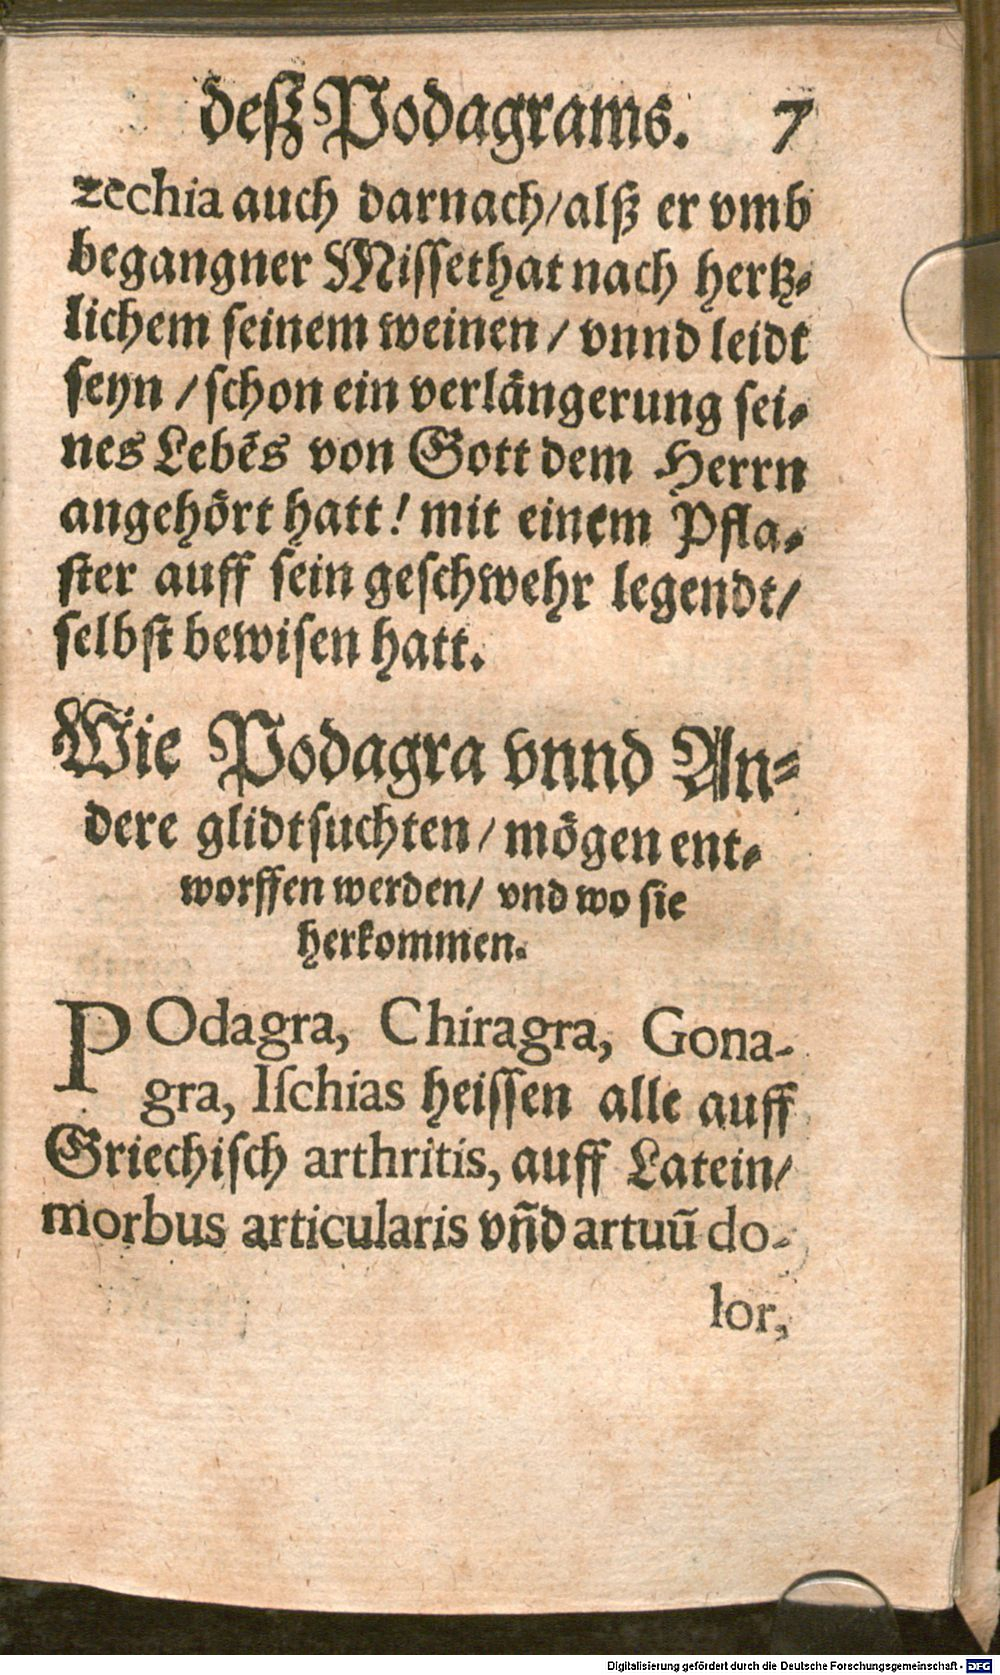 deß Podagrams. 7
zechia auch darnach/alß er vmb
begangner Missethat nach hertz⸗
lichem seinem weinen / vnnd leidt
seyn / schon ein verlängerung sei⸗
nes Lebēs von Gott dem Herrn
angehört hatt! mit einem Pfla⸗
ster auff sein geschwehr legendt/
selbst bewisen hatt.
Wie Podagra vnnd An⸗
dere glidtsuchten / mögen ent⸗
worffen werden/ vnd wo sie
herkommen.
POdagra, Chiragra, Gona-
gra, Iſchias heissen alle auff
Griechisch arthritis, auff Latein/
morbus articularis vñd artuū do-
lor,
Digitalisierung gefördert durch die Deutsche Forschungsgemeinschaft - DFG